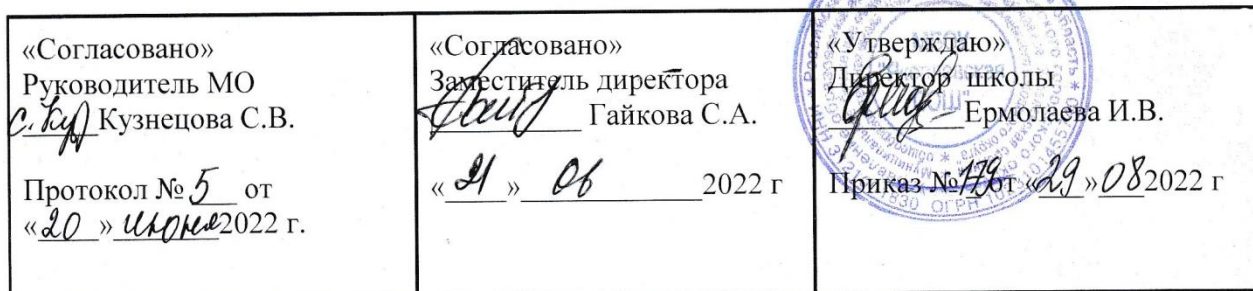 «Согласовано»
Руководитель МО
Кузнецова С.В.
Протокол № 5 от
«20» июня 2022 г.
«Согласовано»
Заместитель директора
Гайкова С.А.
« 21 » 06 2022 г
«Утверждаю»
Директор школы
Ермолаева И.В.
Приказ № 179 от «29» 08 2022 г
ОГРН